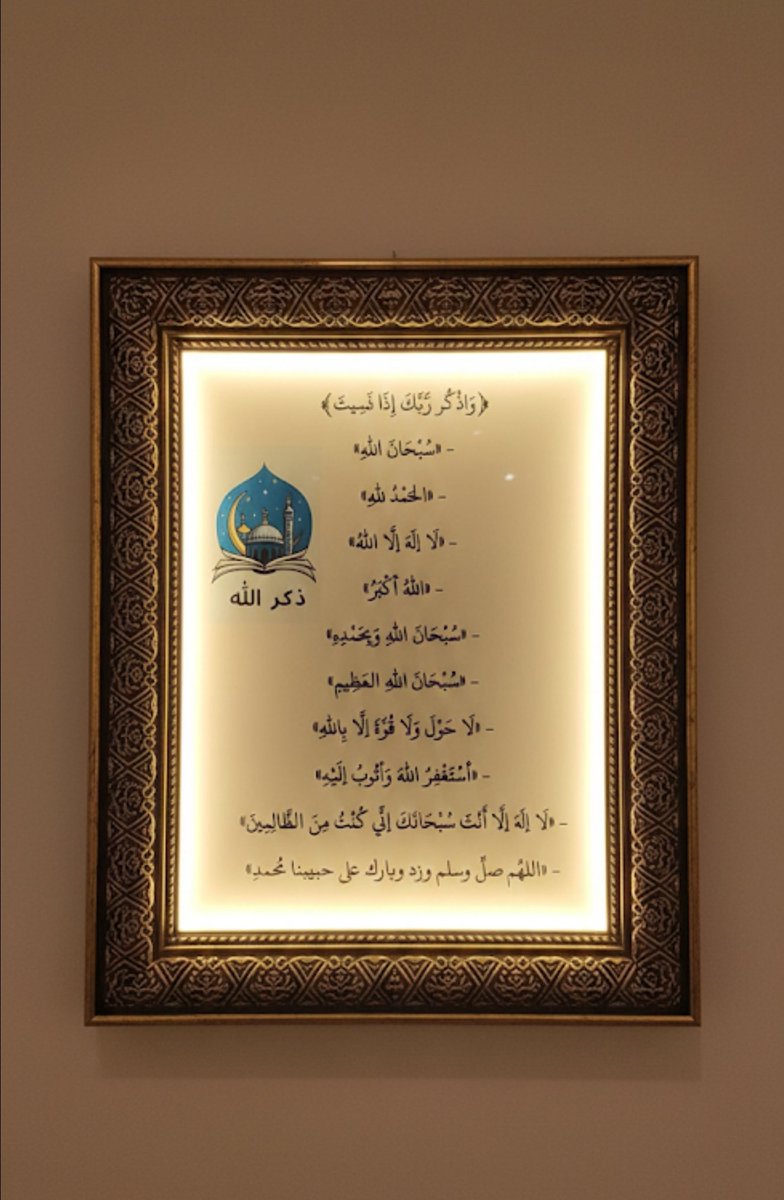 ﴿وَاذْكُر رَّبَّكَ إِذَا نَسِيتَ﴾
- «سُبْحَانَ اللهِ»
- «الحَمْدُ للهِ»
- «لَا إِلَهَ إِلَّا اللهُ»
- «اللهُ أَكْبَرُ»
- «سُبْحَانَ اللهِ وَبِحَمْدِهِ»
- «سُبْحَانَ اللهِ العَظِيمِ»
- «لَا حَوْلَ وَلَا قُوَّةَ إِلَّا بِاللهِ»
- «أَسْتَغْفِرُ اللهَ وَأَتُوبُ إِلَيْهِ»
- «لَا إِلَهَ إِلَّا أَنْتَ سُبْحَانَكَ إِنِّي كُنْتُ مِنَ الظَّالِمِينَ»
- «اللهُم صلِّ وسلم وزد وبارك على حبيبنا مُحمدِ»
ذكر الله